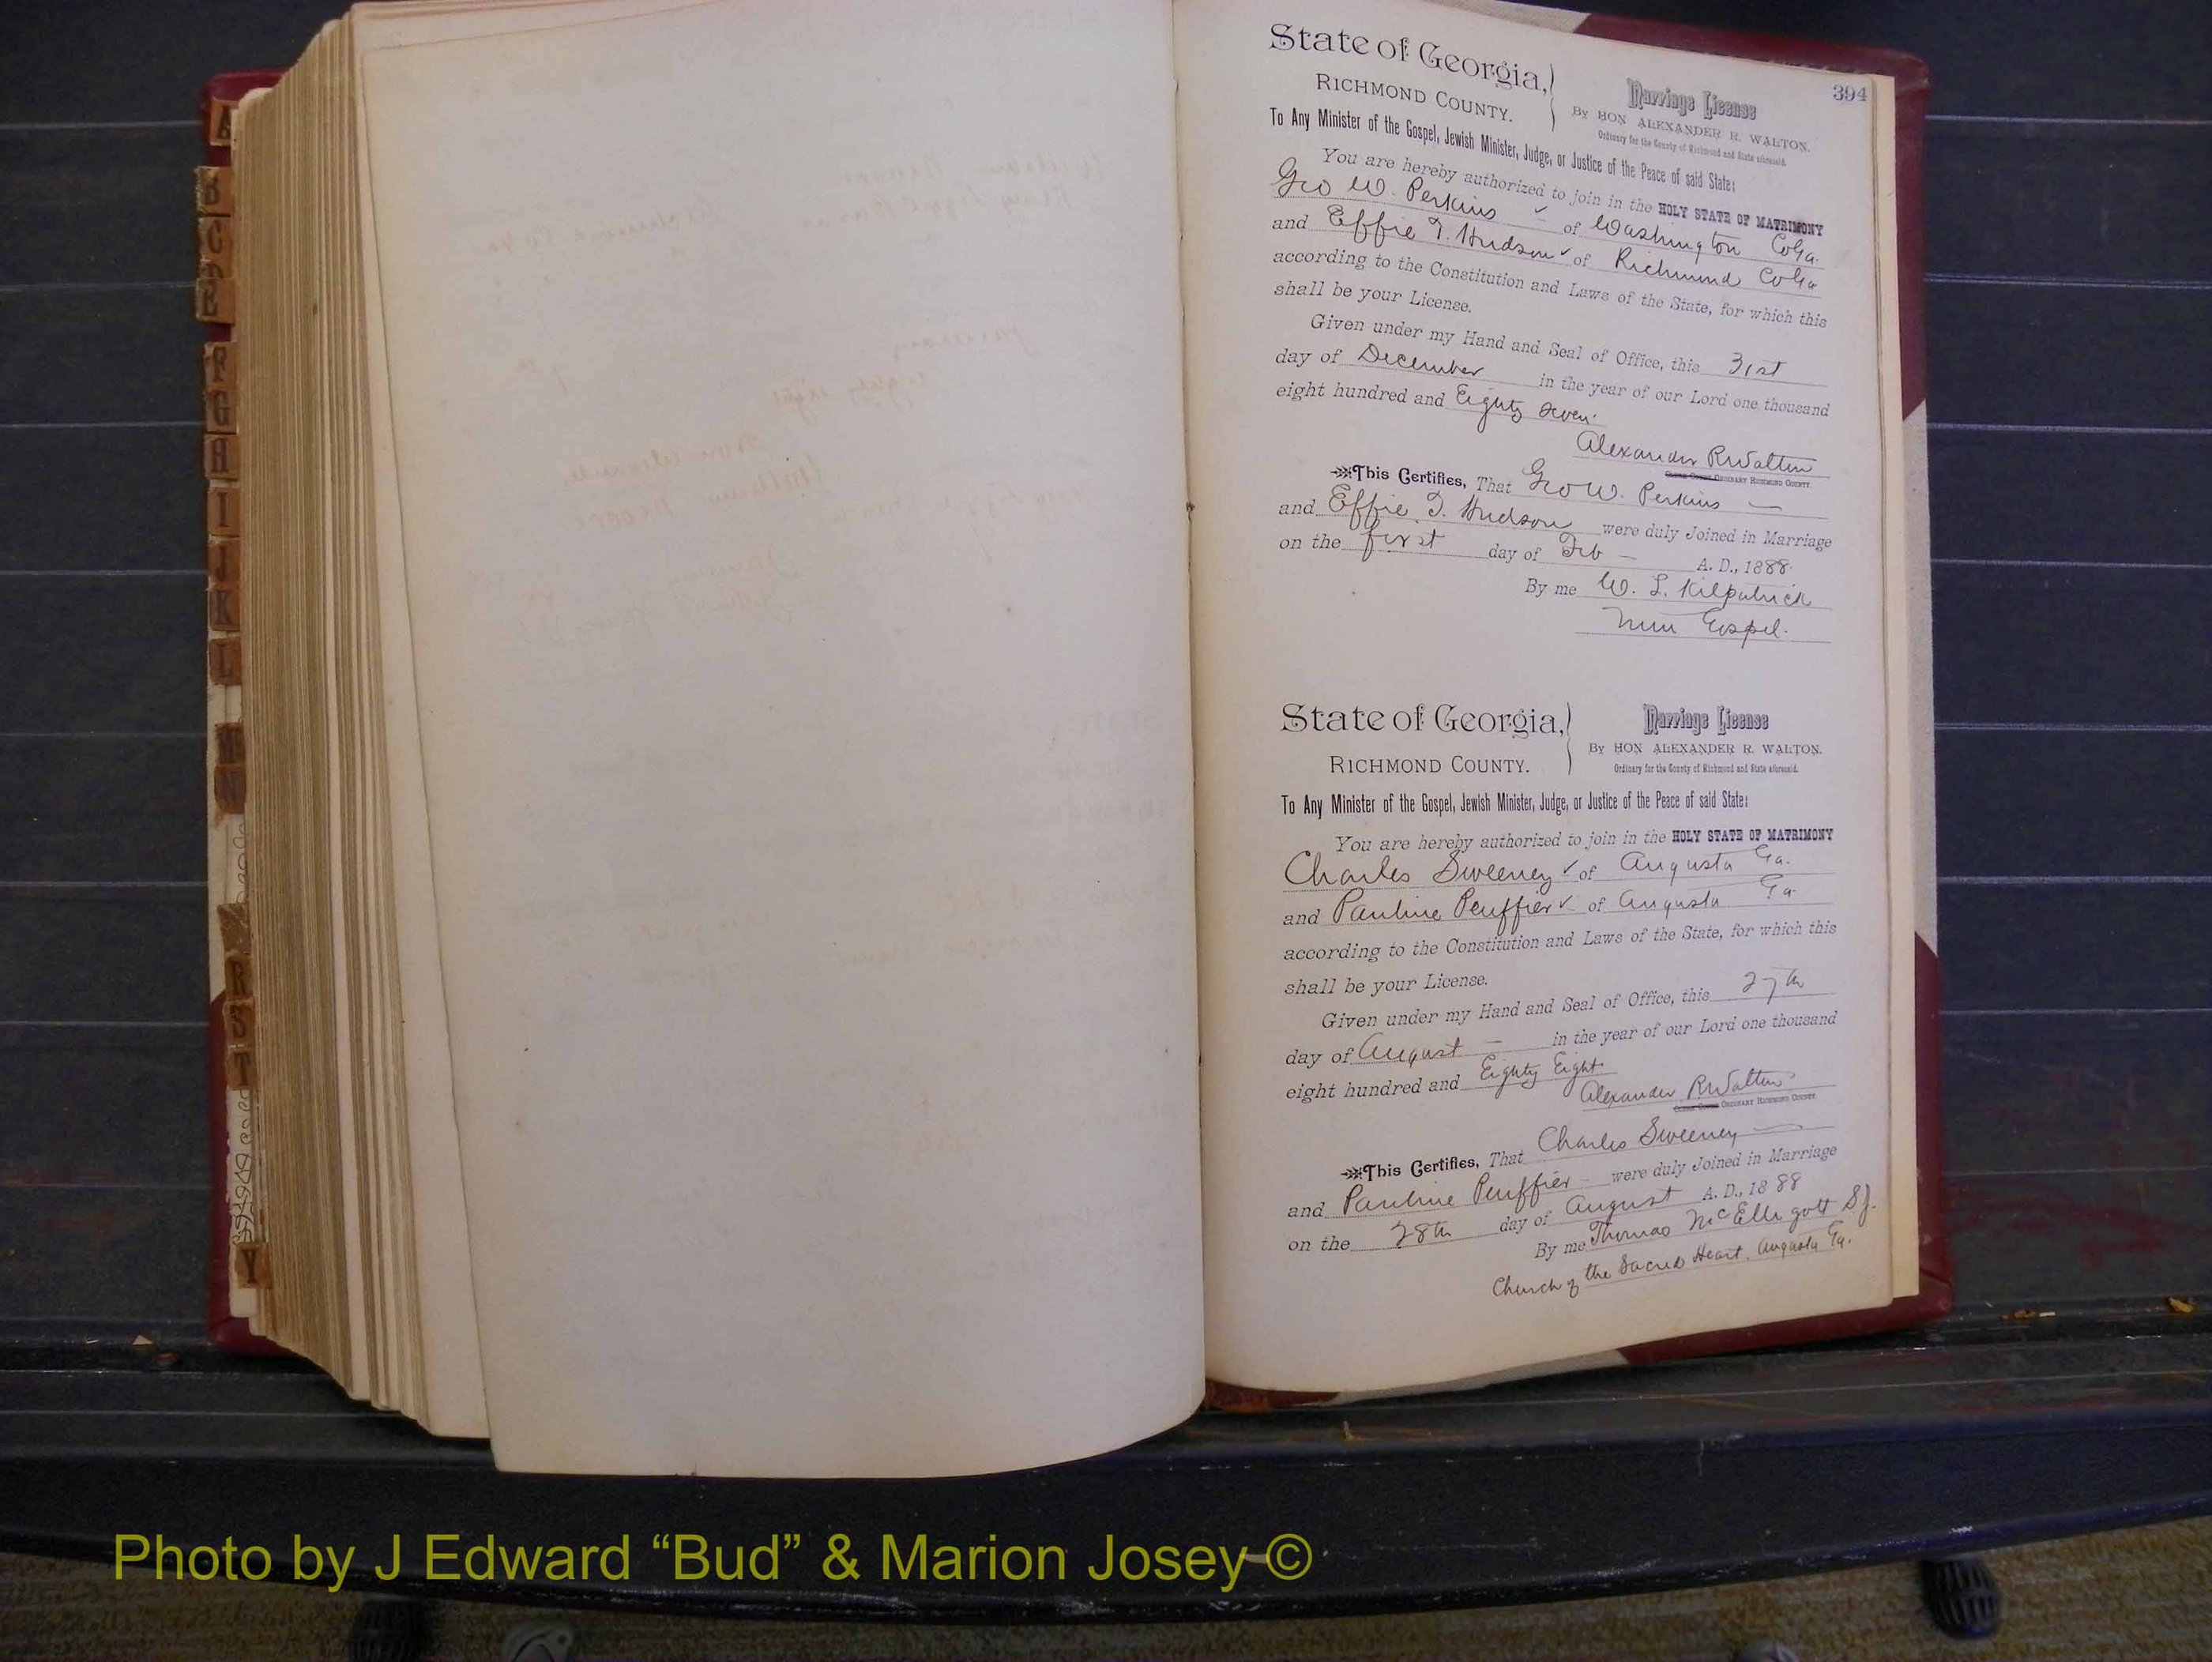 394
State of Georgia,
RICHMOND COUNTY.
Marriage License
BY HON ALEXANDER R. WALTON.
Ordinary for the County of Richmond and State aforesaid.
To Any Minister of the Gospel, Jewish Minister, Judge, or Justice of the Peace of said State:
You are hereby authorized to join in the HOLY STATE OF MATRIMONY
Geo W. Perkins of Washington Co Ga.
and Effie T. Hudson of Richmond Co Ga
according to the Constitution and Laws of the State, for which this
shall be your License.
Given under my Hand and Seal of Office, this 31st
day of December in the year of our Lord one thousand
eight hundred and Eighty Seven
Alexander R Walton
ORDINARY RICHMOND COUNTY.
This Certifies, That Geo W. Perkins
and Effie T. Hudson were duly Joined in Marriage
on the first day of Feb A. D., 1888
By me W. L. Kilpatrick
Min Gospel.
State of Georgia,
RICHMOND COUNTY.
Marriage License
BY HON ALEXANDER R. WALTON.
Ordinary for the County of Richmond and State aforesaid.
To Any Minister of the Gospel, Jewish Minister, Judge, or Justice of the Peace of said State:
You are hereby authorized to join in the HOLY STATE OF MATRIMONY
Charles Sweeney of Augusta Ga.
and Pauline Peuffier of Augusta Ga.
according to the Constitution and Laws of the State, for which this
shall be your License.
Given under my Hand and Seal of Office, this 27th
day of August in the year of our Lord one thousand
eight hundred and Eighty Eight
Alexander R Walton
ORDINARY RICHMOND COUNTY.
This Certifies, That Charles Sweeney
and Pauline Peuffier were duly Joined in Marriage
on the 28th day of August A. D., 1888
By me Thomas McElligott S.J.
Church of the Sacred Heart. Augusta Ga.
A
B
C
D
E
F
G
H
I
J
K
L
Mc
N
R
S
T
Y
Photo by J Edward “Bud” & Marion Josey ©